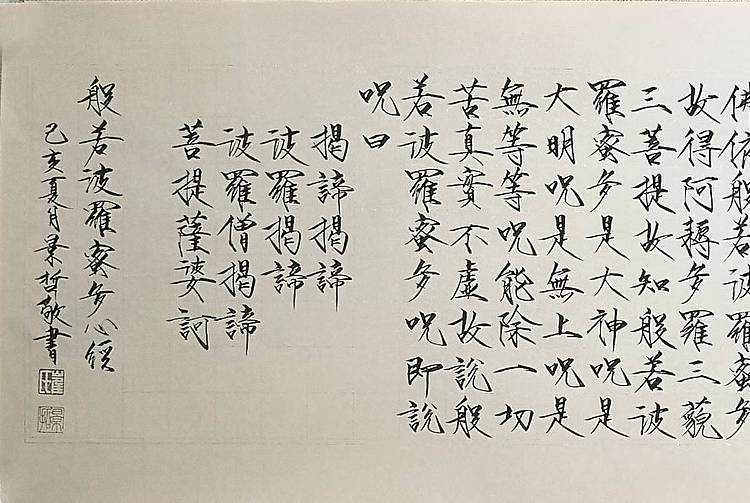 佛依般若波羅蜜多
故得阿耨多羅三藐
三菩提故知般若波
羅蜜多是大神呪是
大明呪是無上呪是
無等等呪能除一切
苦真實不虛故說般
若波羅蜜多呪即說
呪曰
揭諦揭諦
波羅揭諦
波羅僧揭諦
菩提薩婆訶
般若波羅蜜多心經
己亥夏月哲敬書